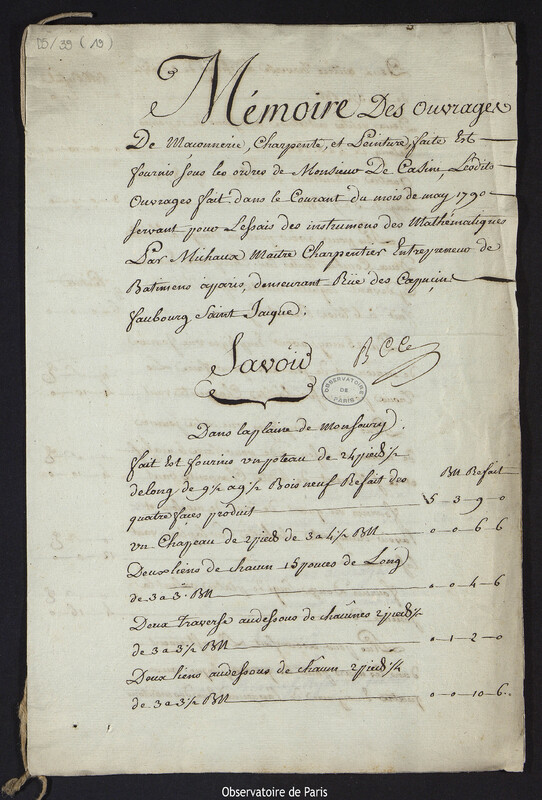 D5/39 (19)
Mémoire Des ouvrages
De Maconnerie, Charpente, et Peinture, faite Est
fournis sous les ordres de Monsieur De Casini, Lesdits
Ouvrages fait dans le Courant du mois de may 1790
servant pour Lessais des instrumens des Mathématiques
Par Michaux Maitre Charpentier Entrepreneur de
Batimens aparis, demeurant Rüe des Capucins
faubourg Saint Jaique.
Savoir
OBSERVATOIRE DE PARIS
Dans laplaine de Monsoury.
fait Est fournis un poteau de 24 pieds ½
delong de 9½ a 9½ Bois neuf Refait des
BN Refait
quatre faces produit 5 3 9 0
un Chapeau de 2 pieds de 3 a 4½ BN 0 0 6 6
Deux liens de chacun 15 pouces de Long
de 3 a 3. BN 0 0 4 6
Deux Traverse audessous de chacunes 2 pieds ½
de 3 a 3½ BN 0 1 2 0
Deux liens audessous de chacun 2 pieds ¼
de 3 a 3½ BN 0 0 10 6
Observatoire de Paris